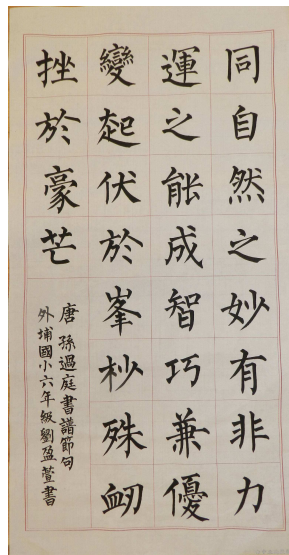 同自然之妙有非力
運之能成智巧兼優
變起伏於峯杪殊衂
挫於豪芒
唐孫過庭書譜節句
外埔國小六年級劉盈萱書